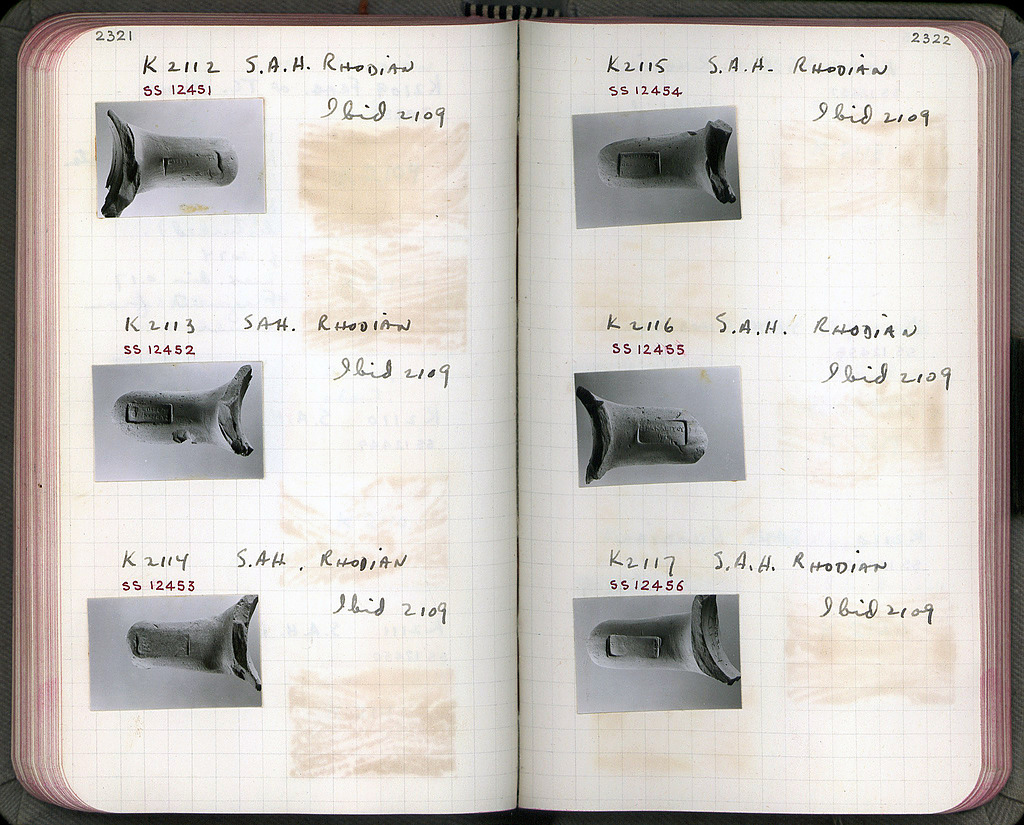 2321
K 2112 S.A.H. RHODIAN
SS 12451
Ibid 2109
K 2113 SAH. RHODIAN
SS 12452
Ibid 2109
K 2114 S.AH. RHODIAN
SS 12453
Ibid 2109
2322
K 2115 S.A.H. RHODIAN
SS 12454
Ibid 2109
K 2116 S.A.H. RHODIAN
SS 12455
Ibid 2109
K 2117 S.A.H. RHODIAN
SS 12456
Ibid 2109